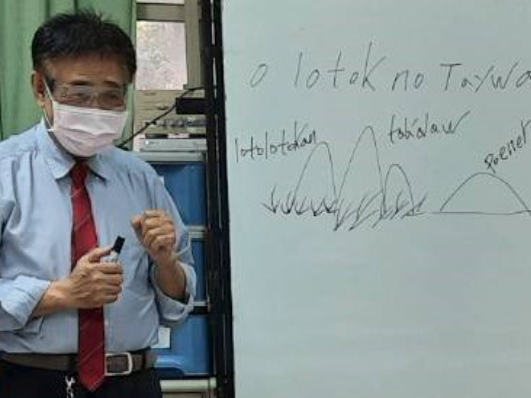 O lotok no Taywa
lotolotokan
takalaw
Poener